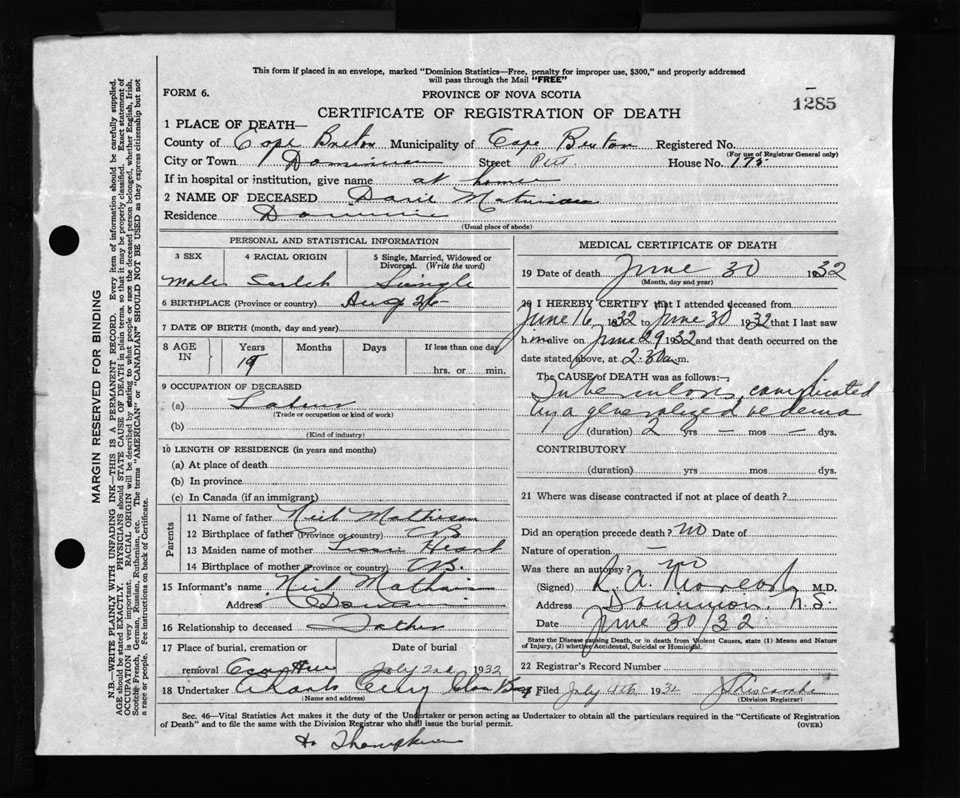 This form if placed in an envelope, marked "Dominion Statistics—Free, penalty for improper use, $300," and properly addressed
will pass through the Mail "FREE"
FORM 6.
PROVINCE OF NOVA SCOTIA
1285
CERTIFICATE OF REGISTRATION OF DEATH
1 PLACE OF DEATH—
County of Cape Breton Municipality of Cape Breton Registered No.
(For use of Registrar General only)
City or Town Dominion Street Pitt House No. 175
If in hospital or institution, give name at home
2 NAME OF DECEASED
Residence Dominion
(Usual place of abode)
PERSONAL AND STATISTICAL INFORMATION
3 SEX 4 RACIAL ORIGIN 5 Single, Married, Widowed or Divorced. (Write the word)
Male Scotch Single
6 BIRTHPLACE (Province or country) Aug 26
7 DATE OF BIRTH (month, day and year)
8 AGE IN Years Months Days If less than one day
19 hrs. or min.
9 OCCUPATION OF DECEASED
(a) Labour
(Trade or occupation or kind of work)
(b)
(Kind of industry)
10 LENGTH OF RESIDENCE (in years and months)
(a) At place of death
(b) In province
(c) In Canada (if an immigrant)
Parents
11 Name of father Neil Mathison
12 Birthplace of father (Province or country) CB
13 Maiden name of mother
14 Birthplace of mother (Province or country) CB.
15 Informant's name Neil
Address Dominion
16 Relationship to deceased Father
17 Place of burial, cremation or removal Date of burial
July 2nd 1932
18 Undertaker
(Name and address)
MEDICAL CERTIFICATE OF DEATH
19 Date of death June 30 1932
(Month, day and year)
20 I HEREBY CERTIFY that I attended deceased from
June 16 1932 to June 30 1932 that I last saw
him alive on June 29 1932 and that death occurred on the
date stated above, at 2.30 a.m.
The CAUSE of DEATH was as follows:
Tuberculosis, complicated
by a generalized oedema
(duration) 2 yrs — mos — dys.
CONTRIBUTORY
(duration) yrs mos dys.
21 Where was disease contracted if not at place of death?
Did an operation precede death? no Date of
Nature of operation —
Was there an autopsy? no
(Signed) R. A. M.D.
Address Dominion, N.S.
Date June 30/32
State the Disease causing Death, or in death from Violent Causes, state (1) Means and Nature
of Injury, (2) whether Accidental, Suicidal or Homicidal.
22 Registrar's Record Number
Filed July 4th 1932
(Division Registrar)
Sec. 46—Vital Statistics Act makes it the duty of the Undertaker or person acting as Undertaker to obtain all the particulars required in the "Certificate of Registration
of Death" and to file the same with the Division Registrar who shall issue the burial permit.
(OVER)
MARGIN RESERVED FOR BINDING
N.B.—WRITE PLAINLY WITH UNFADING INK—THIS IS A PERMANENT RECORD. Every item of information should be carefully supplied.
AGE should be stated EXACTLY. PHYSICIANS should STATE CAUSE OF DEATH in plain terms, so that it may be properly classified. Exact statement of
OCCUPATION is very important. RACIAL ORIGIN will be described by stating to what people or race the deceased person belonged, whether English, Irish,
Scotch, French, German, Russian, Ruthenian, etc. The terms "AMERICAN" or "CANADIAN" SHOULD NOT BE USED as they express citizenship but not
a race or people. See instructions on back of Certificate.